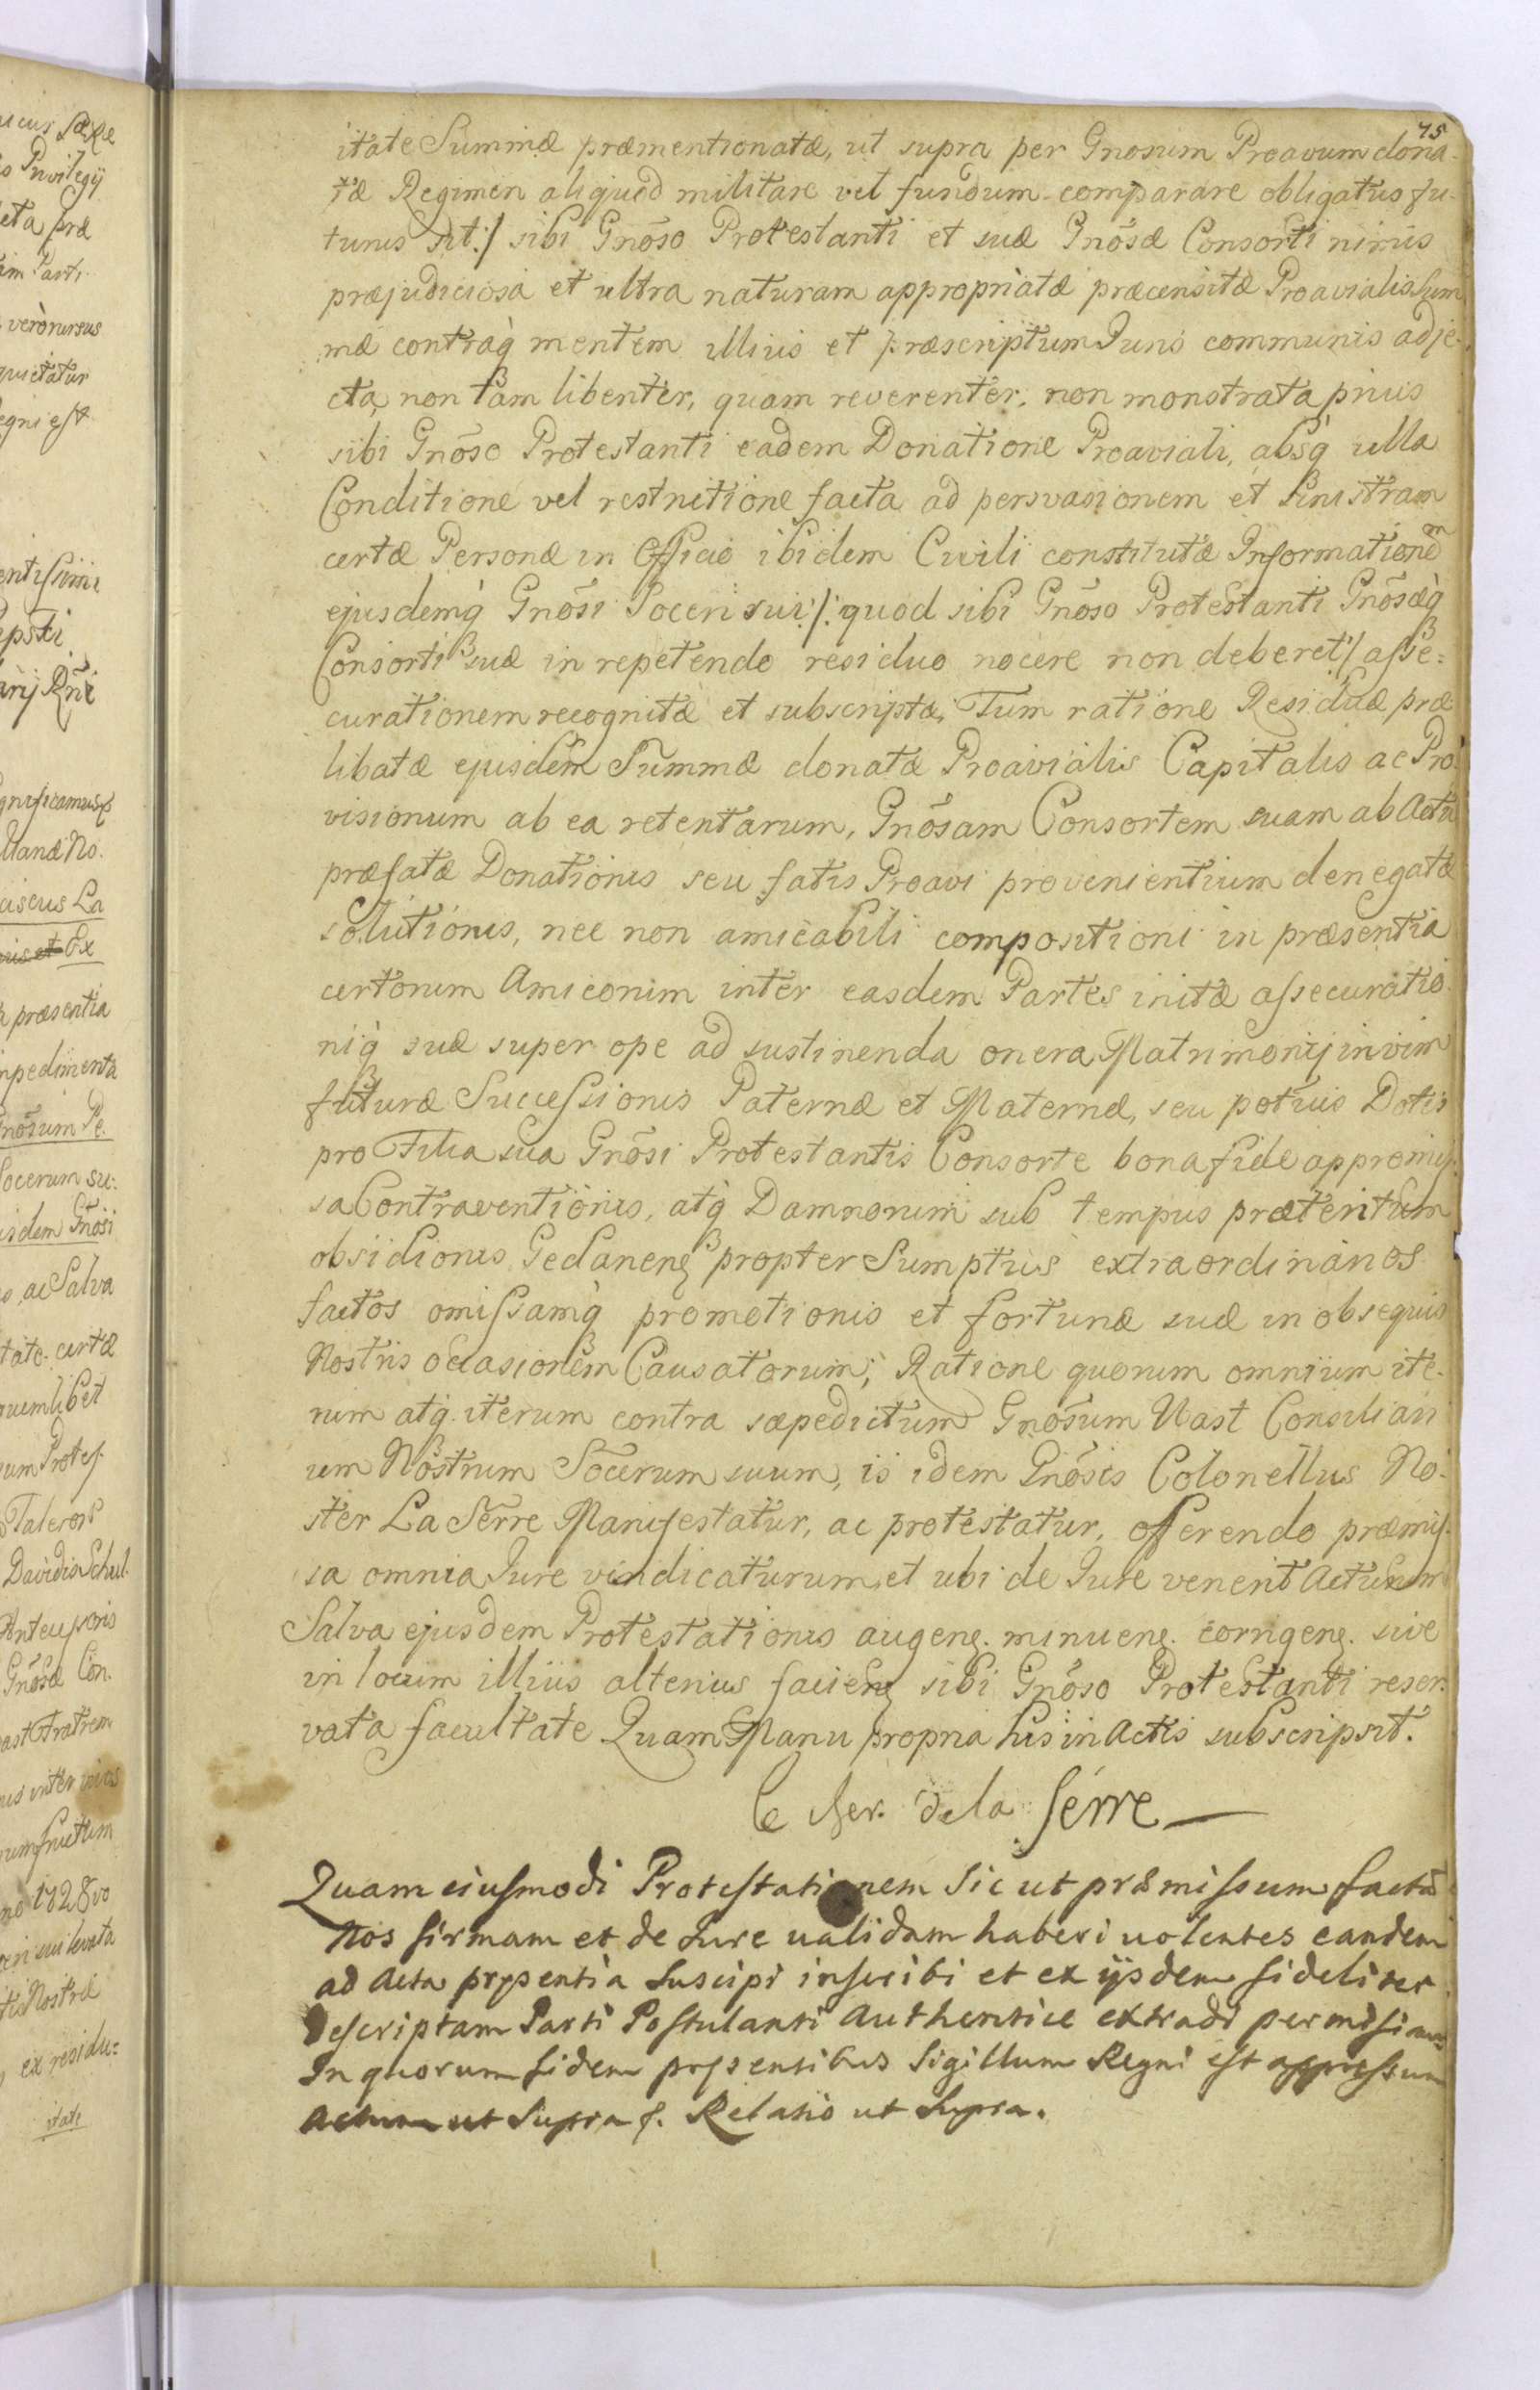 75
itate Summæ præmentionatæ, ut supra per Gnosum Proavum dona-
tæ Regimen aliquod militare vel fundum comparare obligatus fu-
turus sit:/ sibi Gnõso Protestanti et suæ Gnõsæ Consorti nimis
præjudiciosa et ultra naturam appropriatæ præcensitæ Proavialis Sum
mæ contraq̀ mentem illius et præscriptum Juris communis adje-
cta, non tam libenter, quam reverenter, non monstrata prius
sibi Gnõso Protestanti eadem Donatione Proaviali, absq̀ ulla
Conditione vel restrictione facta ad persvasionem et sinistram
certæ Personæ in Officio ibidem Civili constitutæ Informationem
ejusdemq̀ Gnõsi Soceri sui /: quod sibi Gnõso Protestanti Gnõsæq̀
Consorti suæ in repetendo residuo nocere non deberet :/ asse=
curationem recognitæ et subscriptæ, Tum ratione Residuæ præ
libatæ ejusdem Summæ donatæ Proavialis Capitalis ac Pro-
visionum ab ea retentarum, Gnõsam Consortem suam ab Actu
præfatæ Donationis seu fatis Proavi provenientium denegatæ
solutionis, nec non amicabili compositioni in præsentia
certorum Amicorum inter easdem Partes initæ assecuratio-
niq̀ suæ super ope ad sustinenda onera Matrimonij in vim
futuræ Successionis Paternæ et Maternæ, seu potius Dotis
pro Filia sua Gnõsi Protestantis Consorte bona fide appromis-
sa Contraventionis, atq̀ Damnorum sub tempus præteritum
obsidionis Gedanen̄ propter Sumptus extraordinarios
factos omissamq̀ promotionis et fortunæ suæ in obsequis
Nostris occasionem Causatorum; Ratione quorum omnium ite-
rum atq̀ iterum contra sæpedictum Gnõsum Wast Consiliari
um Nostrum Socerum suum, is idem Gnõsis Colonellus No-
ster La Serre Manifestatur, ac protestatur, offerendo præmis-
sa omnia Jure vindicaturum, et ubi de Jure venerit Acturum
Salva ejusdem Protestationis augenȩ. minuenȩ. corrigenȩ. sive
in locum illius alterius facienȩ sibi Gnõso Protestanti reser-
vata facultate Quam Manu propria his in Actis subscripsit.
le Cher. de la Sérre
Quam eiusmodi Protestationem Sic ut præmissum factã
Nos firmam et de Jure ualidam haberi uolentes eandem
ad Acta pręsentia Suscipi inscribi et ex ijsdem fideliter
Descriptam Parti Postulanti Authentice extradi permisimus
In quorum fidem pręsentibus Sigillum Regni est appressum
Actum ut Supra f. Relatio ut Supra.